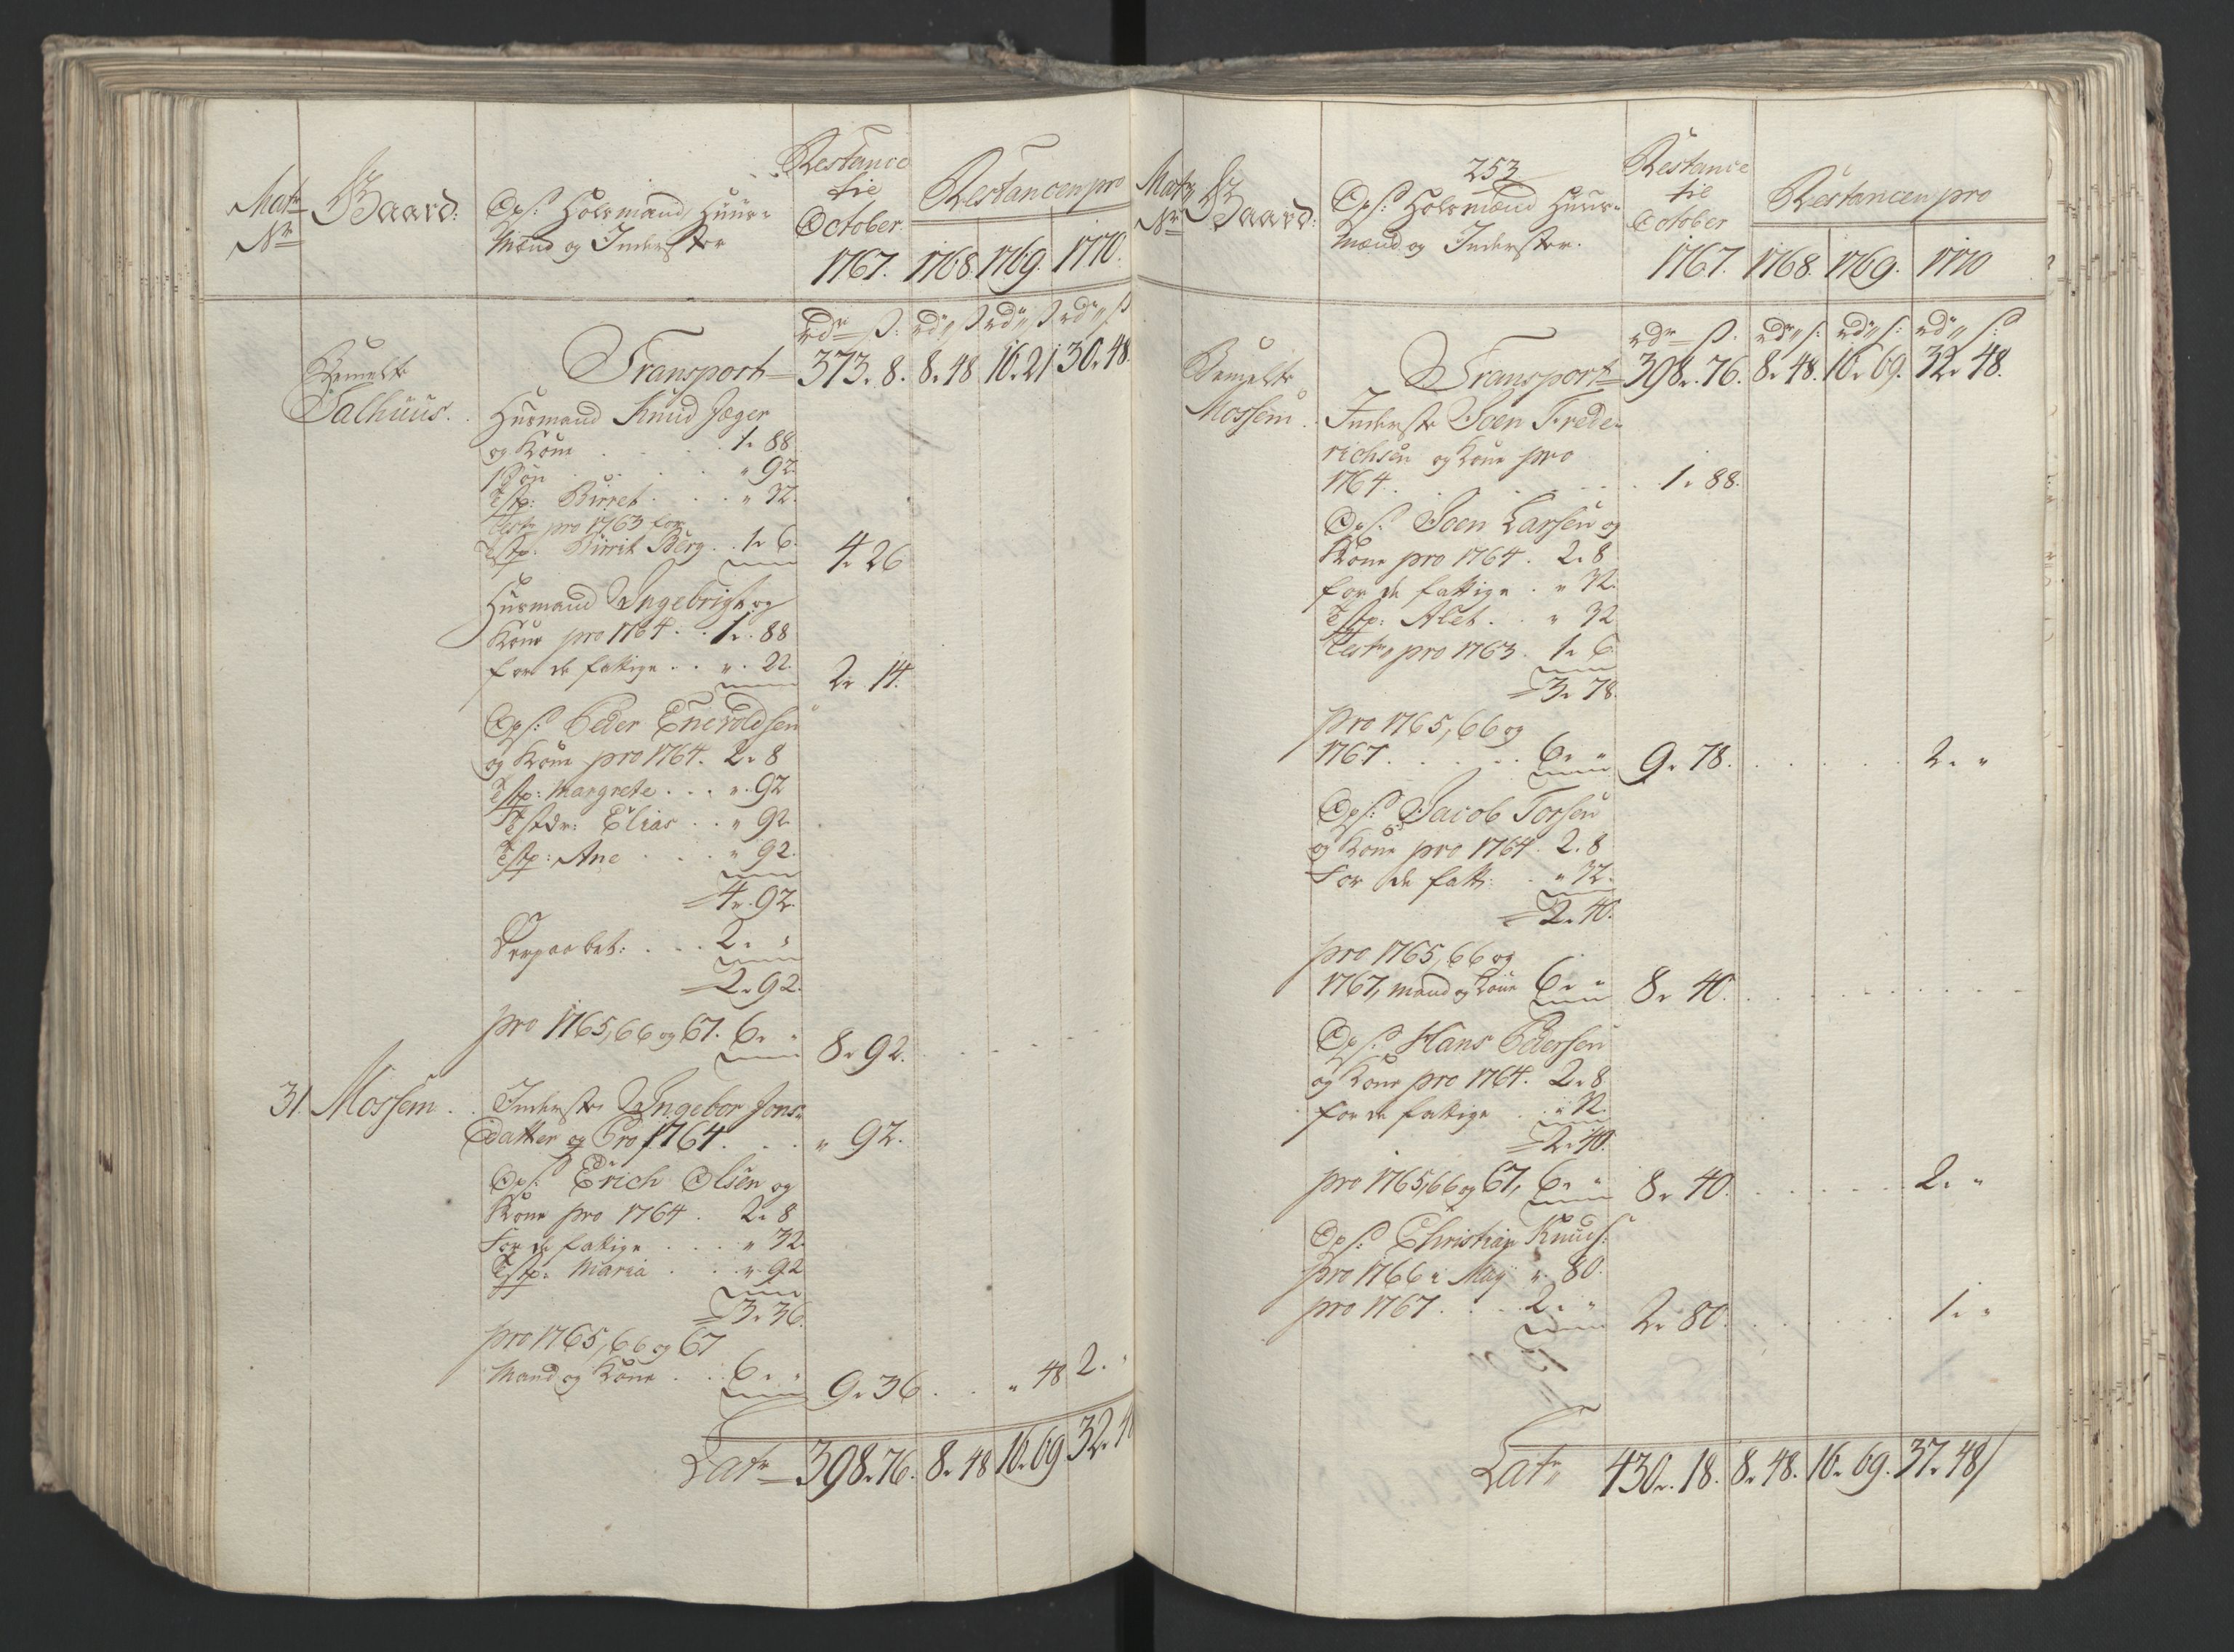 Matr Nr
Gaard:
Ops: Holsmænd, Huus-
mænd og Inderster
Restance
til
October
1767.
Restancen pro
1768. 1769. 1770.
rdr ß: rd ß rd ß rd ß
Bemelte Transport 373. 8. 8. 48 16. 21 30. 48.
Salhuus.
Husmand Knud Jæger
og Kone . . . 1. 88
1 Søn . . . " 92.
Tstp: Birret . . . " 32.
Rest pro 1763 for
Tstp: Birrit Berg . . 1. 6. 4. 26
Husmand Ingebrigt og
Kone pro 1764 . . 1. 88
for de fattige . . " 22. 2. 14.
Ops: Peder Enevoldsen
og Kone pro 1764. 2. 8
Tstp: Margrete . . . " 92
Tstdr: Elias . . " 92
Tstp: Ane . . . " 92.
4. 92.
Derpaa bet: . . . 2. "
2. 92.
pro 1765, 66 og 67. 6. " 8. 92.
31. Mossem . . Inderste Ingebor Jons-
Datter og Pro 1764 . . . " 92.
Ops: Erich Olsen og
Kone pro 1764 . 2. 8
For de fattige . . . " 32
Tstp: Maria . . " 92
3. 36.
pro 1765, 66 og 67
Mand og Kone . . 6. " 9. 36 . . " 48 2. "
Latr 398. 76. 8. 48 16. 69 32. 4
253
Matr Nr
Gaard:
Ops: Holsmænd Huus-
mænd og Inderster.
Restance
til
October
1767.
Restancen pro
1768. 1769. 1770
rdr ß. rdr ß: rd ß: rd ß:
Bemelte Transport 398. 76. 8. 48. 16. 69. 32. 48.
Mossem .
Inderste Joen Frede-
richsen og Kone pro
1764 . . . . 1. 88.
Ops: Joen Larsen og
Kone pro 1764. 2. 8
for de fattige . " 32.
Tstp: Alet . . " 32
Rest pro 1763. 1. 6
3. 78.
pro 1765, 66 og
1767 . . . . . 6. " 9. 78. . . . . . 2. "
Ops: Jacob Torsen
og Kone pro 1764. 2. 8
For de fatt: . " 32.
2. 40.
pro 1765, 66 og
1767, mand og Kone 6. " 8. 40. . . . . . . .
Ops: Hans Pedersen
og Kone pro 1764. 2. 8
for de fattige . . " 32.
2. 40.
pro 1765, 66 og 67, 6. " 8. 40. . . . . . 2. "
Ops: Christian Knuds:
pro 1766 i May " 80.
pro 1767 . . . 2. " 2. 80. . . . . . 1. "
Latr 430. 18. 8. 48. 16. 69. 37. 48